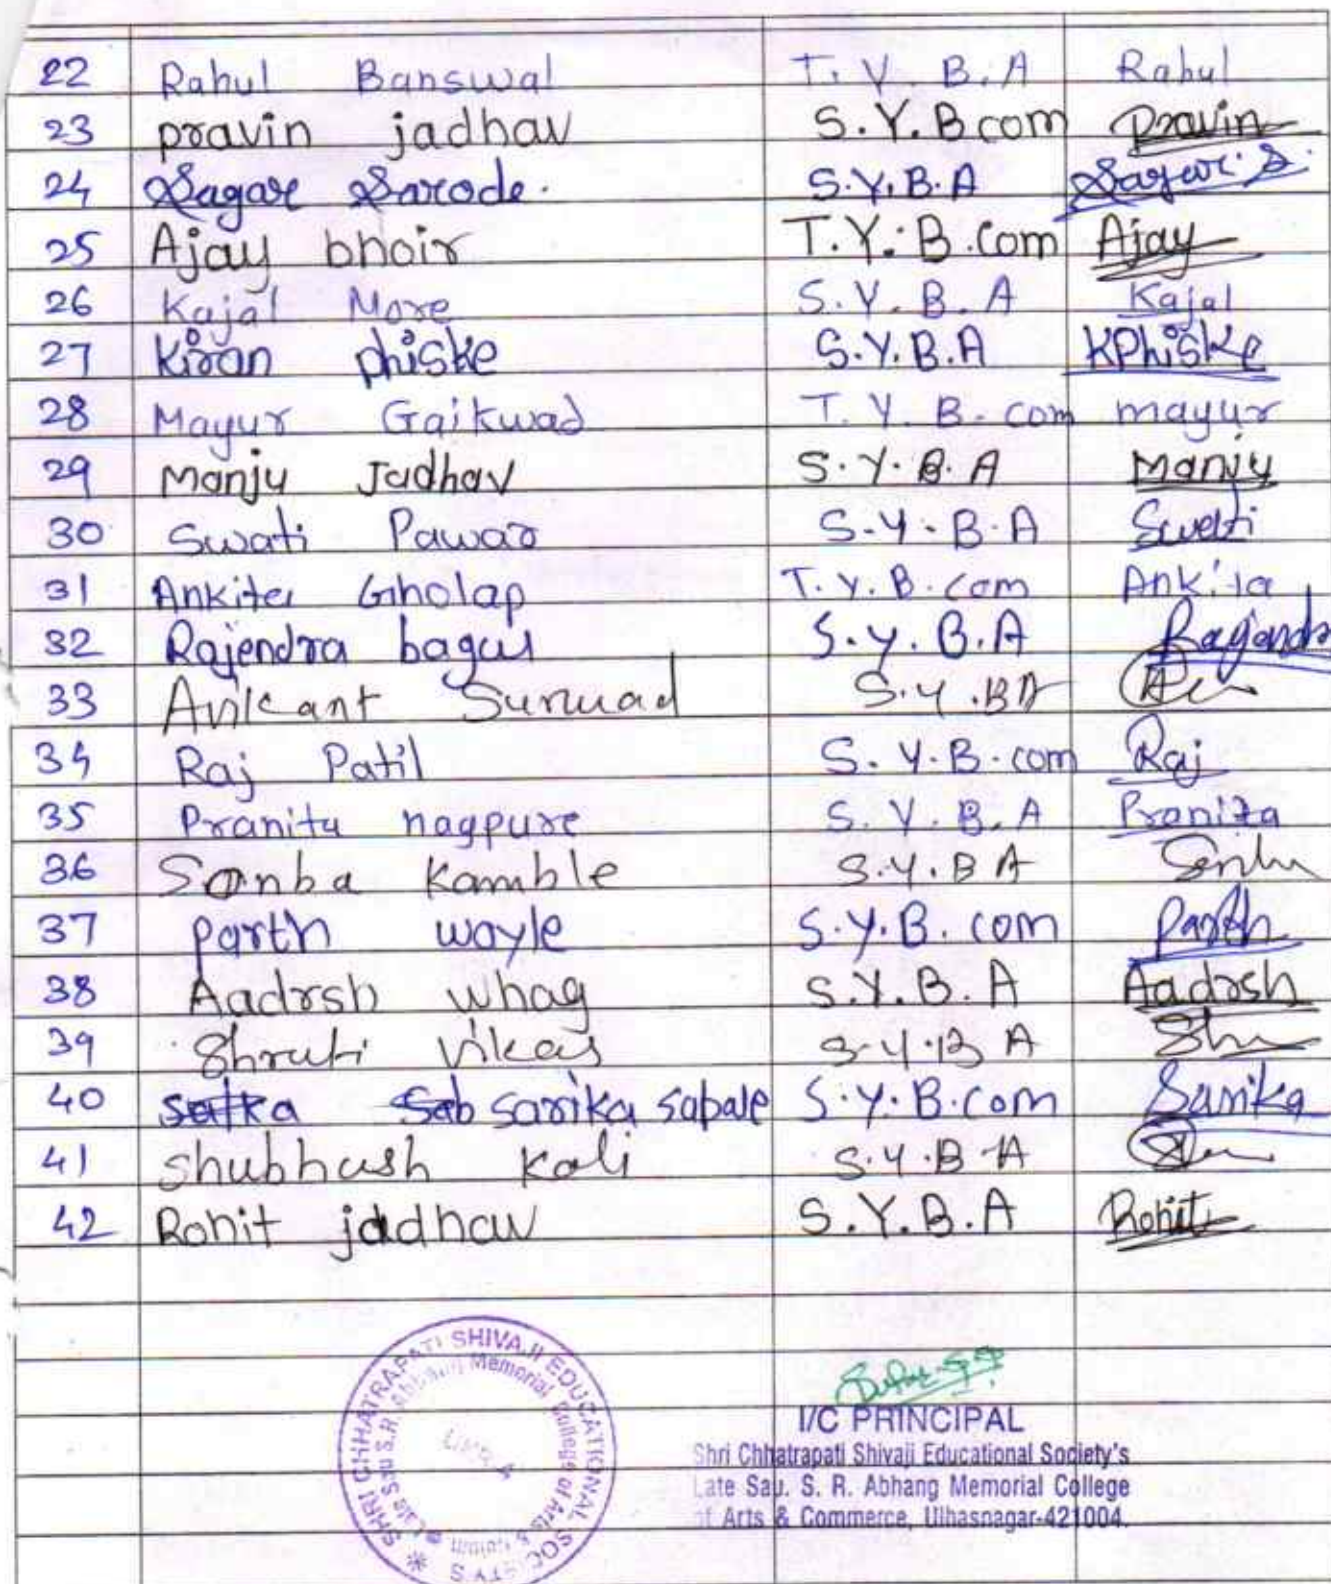 22 Rahul Banswal T. Y. B. A Rahul
23 pravin jadhav S.Y.B com Pravin
24 Sagar Sarode. S.Y.B.A Sagar S.
25 Ajay bhoir T.Y.B.Com Ajay
26 Kajal More S.Y.B.A Kajal
27 kiran phiske S.Y.B.A KPhiske
28 Mayur Gaikwad T.Y.B.com mayur
29 Manju Jadhav S.Y.B.A Manju
30 Swati Pawar S.Y.B.A Swati
31 Ankita Gholap T.Y.B.com Ankita
32 Rajendra bagul S.Y.B.A Rajendra
33 Avikant S.Y.BA
34 Raj Patil S.Y.B.com Raj
35 Pranita nagpure S.Y.B.A Pranita
36 Sonba Kamble S.Y.BA
37 parth wayle S.Y.B.com Parth
38 Aadrsh whag S.Y.B.A Aadrsh
39 Shruti Vikas S.Y.B A
40 sarika sabale S.Y.B.com Sarika
41 Shubhash Kali S.Y.B A
42 Rohit jadhav S.Y.B.A Rohit
SHRI CHHATRAPATI SHIVAJI EDUCATIONAL SOCIETY'S
Late Sau S.R. Abhang Memorial College of Arts &
I/C PRINCIPAL
Shri Chhatrapati Shivaji Educational Society's
Late Sau. S. R. Abhang Memorial College
of Arts & Commerce, Ulhasnagar-421004.